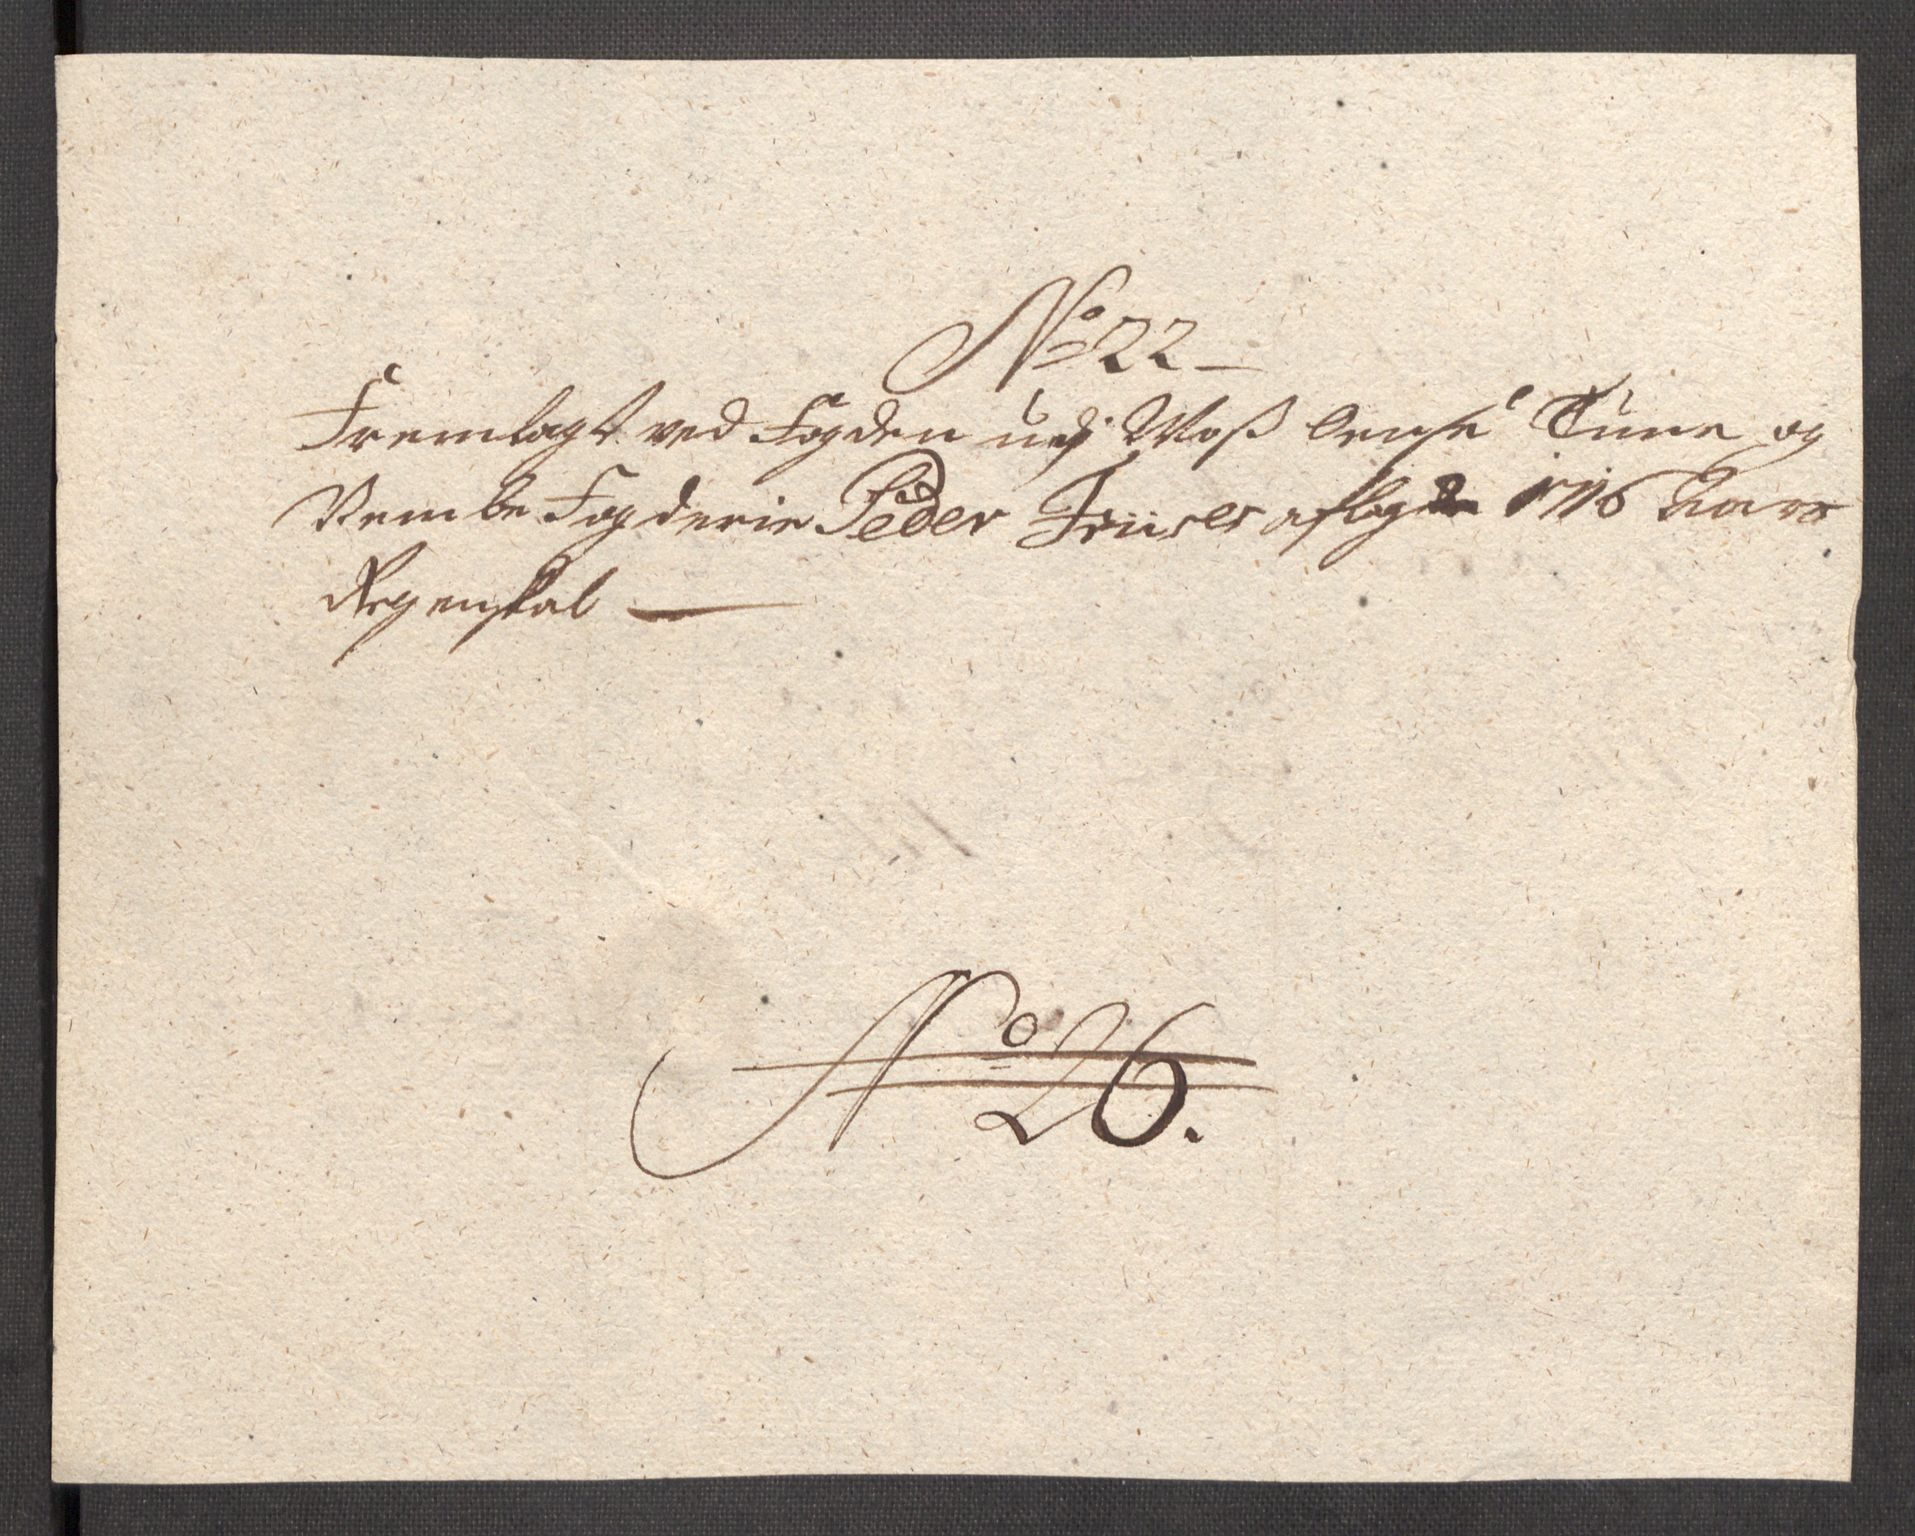 No 22
Fremlagt ved Fogden udj Moss Lehns Tune og
Vembe Fogderie Peder Friises aflagde 1716 Aars
Regenskab
No 26.